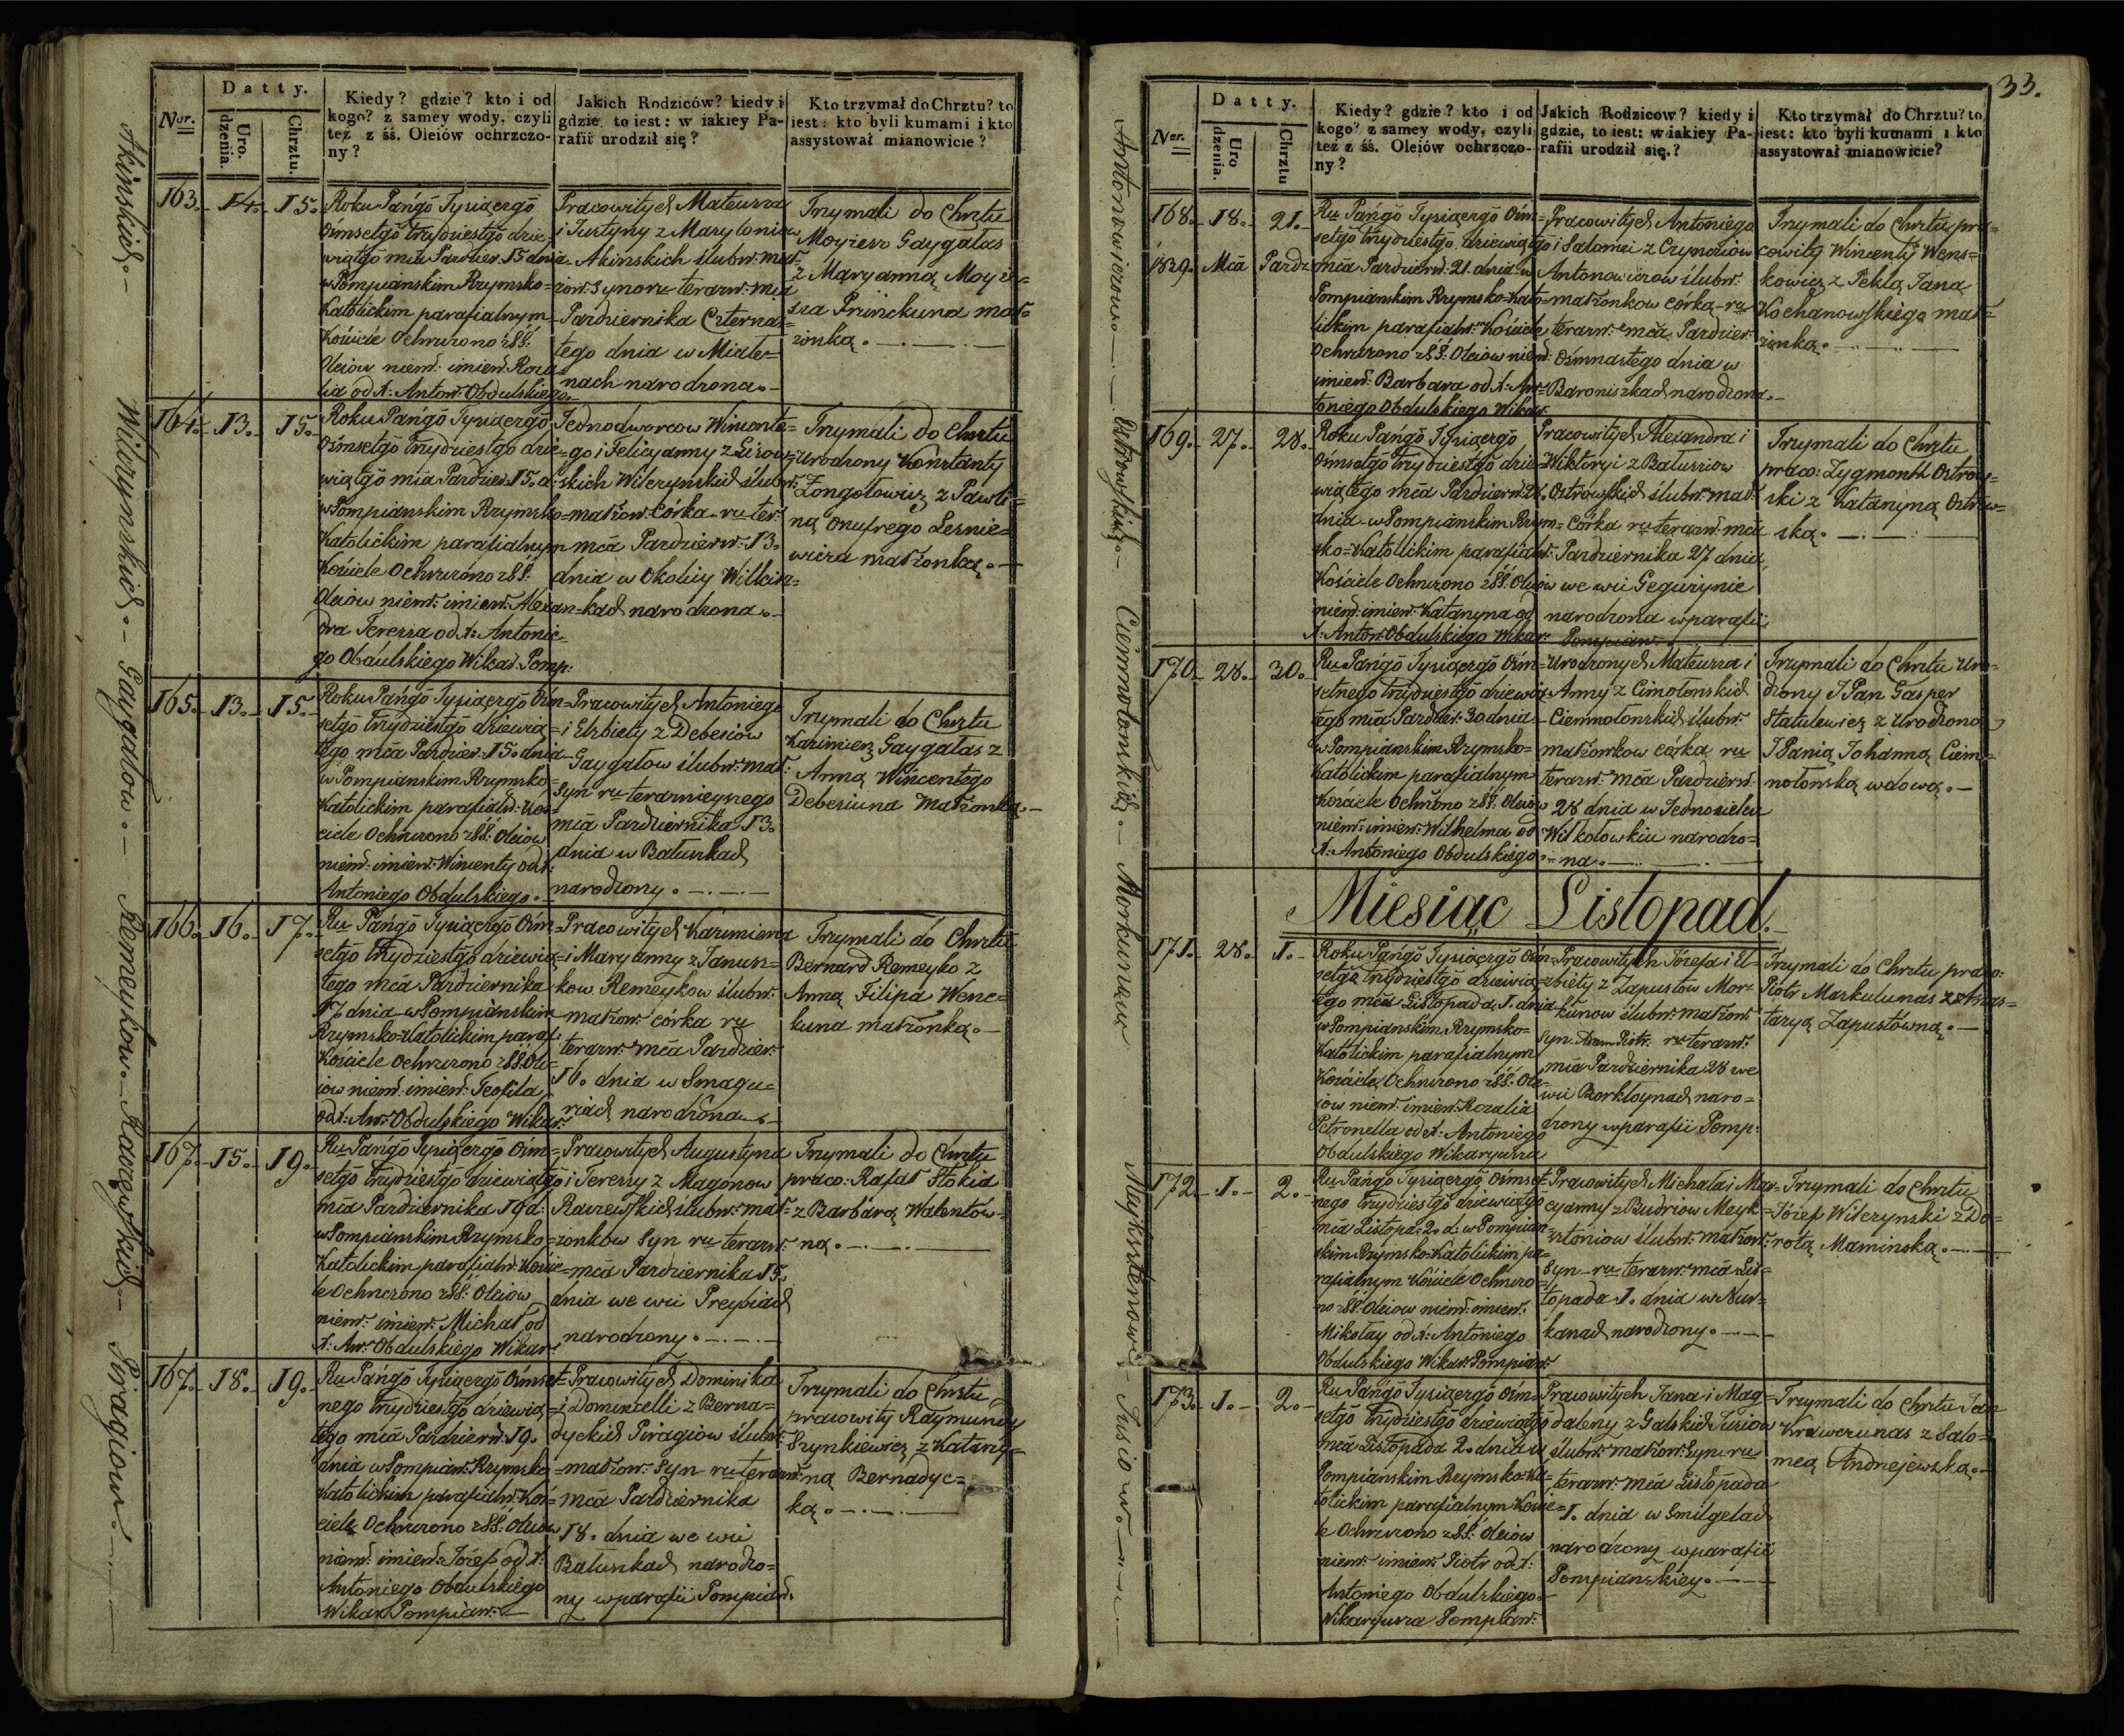 Datty.
Ner.
Uro.
dzenia.
Chrztu.
Kiedy? gdzie? kto i od
kogo? z samey wody, czyli
też z śś. Oleiów ochrzczo-
ny?
Jakich Rodziców? kiedy i
gdzie, to iest: w iakiey Pa-
rafii urodził się?
Kto trzymał do Chrztu? to
iest: kto byli kumami i kto
assystował mianowicie?
Akinskich.
163. 14. 15.
Roku Pańgō Tysiącgō
Ośmsetgō Trzydziestgō dzie
wiątgō mca Paźdźier. 15 dnia
w Pompianskim Rzymsko=
Katolickim parafialnym
Kościele Ochrzczono z SS.
Oleiow niem. imiem. Roza
lia od X: Anton. Obdulskiego.
Pracowitych Mateusza
i Justyny z Marytoniow
Akinskich ślubn: mał.
żon: Synow terazn: mca
Pazdziernika Czterna=
tego dnia w Miate=
nach narodzona.
Trzymali do Chrztu
Moyżesz Gaygałas
z Maryanną Moyże=
sza Prunckuna mał=
żonką.
Wilczynskich.
164. 13. 15.
Roku Pańgō Tysiącgō
Ośmsetgō Trzydziestgō dzie=
wiątgō mca Pazdzier. 15. d:
w Pompianskim Rzymsko=
Katolickim parafialnym
Kościele Ochrzczono z SS.
Oleiow niem. imiem. Alexan=
dra Teressa od X: Antonie=
go Obdulskiego Wikar. Pomp:
Jednodworcow Wincente=
go i Felicyanny z Lisow=
skich Wilczynskich ślubn:
małżon: Córka ru ter:
mca Pazdziern: 13.
dnia w Okolicy Wilkisz=
kach narodzona.
Trzymali do Chrztu
Urodzony Konstanty
Zongołowicz z Pawli=
ną Onufrego Lesnie=
wicza małżonką.
Gaygałow.
165. 13. 15.
Roku Pańgō Tysiącgō Ośm=
setgō Trzydziestgō dziewią=
tego mca Pazdzier. 15. dnia
w Pompianskim Rzymsko=
Katolickim parafialn: Koś=
ciele Ochrzczono z SS. Oleiow
niem. imiem. Wincenty od X:
Antoniego Obdulskiego.
Pracowitych Antoniego
i Elzbiety z Debesiow
Gaygałow ślubn: mał:
Syn ru teraznieyszego
mca Pazdziernika 13.
dnia w Bałuszkach
narodzony.
Trzymali do Chrztu
Kazimierz Gaygałas z
Anną Wincentego
Debesiuna Małżonką.
Remeykow.
166. 16. 17.
Ru Pańgō Tysiącgō Ośm=
setgō Trzydziestgō dziewią=
tego mca Pazdziernika
17 dnia w Pompianskim
Rzymsko=Katolickim paraf.
Kościele Ochrzczono z SS. Ole=
iow niem. imiem. Teofila,
od X: An: Obdulskiego Wikar:
Pracowitych Kazimierza
i Maryanny z Janusz=
kow Remeykow ślubn:
małżon: córka ru
terazn: mca Pazdzier:
16. dnia w Smagu=
riach narodzona.
Trzymali do Chrztu
Bernard Remeyko z
Anną Filipa Wenc=
kuna małżonką.
Raczewskich.
167. 15. 19.
Ru Pańgō Tysiącgō Ośm=
setgō Trzydziestgō dziewiątgō
mca Pazdziernika 19 d:
w Pompianskim Rzymsko=
Katolickim parafialn: Koście=
le Ochrzczono z SS. Oleiow
niem. imiem. Michał od
X: An: Obdulskiego Wikar:
Pracowitych Augustyna
i Teressy z Magonow
Raczewskich ślubn: mał=
żonkow Syn ru terazn:
mca Pazdziernika 15.
dnia we wsi Preybiach
narodzony.
Trzymali do Chrztu
praco: Rafał Stokia
z Barbarą Walentów=
ną.
Piragiow.
167. 18. 19.
Ru Pańgō Tysiącgō Ośmset=
nego Trzydziestgō dziewią=
tego mca Pazdziern. 19.
dnia w Pompian: Rzymsko
Katolickim parafialn: Koś=
ciele Ochrzczono z SS. Oleiow
niem. imiem. Józef od X:
Antoniego Obdulskiego
Wikar. Pompian:
Pracowitych Dominika
i Domincelli z Berna=
dyckich Piragiow ślubn:
małżon: Syn ru terazn:
mca Pazdziernika
18. dnia we wsi
Bałuszkach narodzo=
ny w parafii Pompian.
Trzymali do Chrztu,
pracowity Raymund
Szynkiewicz z Katarzy=
ną Bernadyc=
ką.
33.
Datty.
Ner.
Uro
dzenia.
Chrztu
Kiedy? gdzie? kto i od
kogo? z samey wody, czyli
też z śś. Oleiów ochrzczo-
ny?
Jakich Rodzicow? kiedy i
gdzie, to iest: w iakiey Pa-
rafii urodził się.?
Kto trzymał do Chrztu? to
iest: kto byli kumami i kto
assystował mianowicie?
Antonowiczow.
168. 18. 21.
1829. Mca Pazdz:
Ru Pańgō Tysiącgō Ośm=
setgō Trzydziestgō dziewiątgo
mca Pazdziern. 21. dnia w
Pompianskim Rzymsko=Kato=
lickim parafialn: Kościele
Ochrzczono z SS. Oleiow niem.
imiem. Barbara od X: An=
toniego Obdulskiego Wikar.
Pracowitych Antoniego
i Salomei z Czyzoziow
Antonowiczow ślubn:
małżonkow córka ru
terazn: mca Pazdzier:
Ośmnastego dnia w
Baroniszkach narodzona.
Trzymali do Chrztu pra=
cowity Wincenty Wens=
kowicz z Teklą Jana
Kochanowskiego mał=
żonką.
Ostrowskich.
169. 27. 28.
Roku Pańgō Tysiącgō
Ośmsetgō Trzydziestgō dzie=
wiątego mca Pazdziern. 28.
dnia w Pompianskim Rzym=
sko=Katolickim parafialn:
Kościele Ochrzczono z SS. Oleiow
niem. imiem. Katarzyna od
X: Anton: Obdulskiego Wikar:
Pracowitych Alexandra i
Wiktoryi z Bałuziow
Ostrowskich ślubn: mał:
Córka ru terazn: mca
Pazdziernika 27 dnia,
we wsi Gegużynie
narodzona w parafii
Pompian:
Trzymali do Chrztu
praco: Zygmont Ostrow=
ski z Katarzyną Ostrow=
ską.
Ciemnołonskich.
170. 28. 30.
Ru Pańgō Tysiącgō Ośm=
setnego Trzydziestgō dziewią=
tego mca Pazdzier. 30 dnia
w Pompianskim Rzymsko=
Katolickim parafialnym
Kościele Ochrzono z SS. Oleiow
niem. imiem. Wilhelma od
X: Antoniego Obdulskiego.
Urodzonych Mateusza i
Anny z Cimołonskich
Ciemnołonskich ślubn:
małżonkow córka ru
terazn: mca Pazdziern:
28 dnia w Jednosielu
Witkołowkiu narodzo=
na.
Trzymali do Chrztu Uro=
dzony JPan Gasper
Statulewicz z Urodzoną
JPanią Johanną Ciem=
nołonską wdową.
Miesiąc Listopad.
Morkunow
171. 28. 1.
Roku Pańgō Tysiącgō Ośm=
setgō Trzydziestgō dziewią=
tego mca Listopada 1. dnia
w Pompianskim Rzymsko=
Katolickim parafialnym
Kościele Ochrzczono z SS. Ole=
iow niem. imiem. Rozalia
Petronella od X: Antoniego
Obdulskiego Wikaryusza
Pracowitych Józefa i El=
zbiety z Zapustow Mor=
kunow ślubn: małżon:
Syn Piotr. ru terazn:
mca Pazdziernika 28 we
wsi Borkłoynach naro=
dzony w parafii Pomp:
Trzymali do Chrztu praco:
Piotr Morkulunas z Anas=
tazyą Zapustówną.
Maykszlenow.
172. 1. 2.
Ru Pańgō Tysiącgō Ośmset=
nego Trzydziestgō dziewiątgō
mca Listopa: 2. d: w Pompian=
skim Rzymsko=Katolickim pa=
rafialnym Kościele Ochrzczo=
no z SS. Oleiow niem. imiem.
Mikołay od X: Antoniego
Obdulskiego Wikar. Pompian:
Pracowitych Michała i Mar=
cyanny z Budriow Meyk=
sztoniow ślubn: małżon:
Syn ru terazn: mca Lis=
topada 1. dnia w Nur=
kanach narodzony.
Trzymali do Chrztu
Józef Wilczynski z Do=
rotą Maminską.
Jusiow.
173. 1. 2.
Ru Pańgō Tysiącgō Ośm=
setgō Trzydziestgō dziewiątgō
mca Listopada 2. dnia w
Pompianskim Rzymsko=Ka=
tolickim parafialnym Koście=
le Ochrzczono z SS. Oleiow
niem. imiem. Piotr od X:
Antoniego Obdulskiego
Wikaryusza Pompian:
Pracowitych Jana i Mag=
daleny z Galskich Jusiow
ślubn: małżon: Syn ru
terazn: mca Listopada
1. dnia w Smilgelach
narodzony w parafii
Pompianskiey.
Trzymali do Chrztu Jan
Krawczunas z Salo=
meą Andrzejewską.